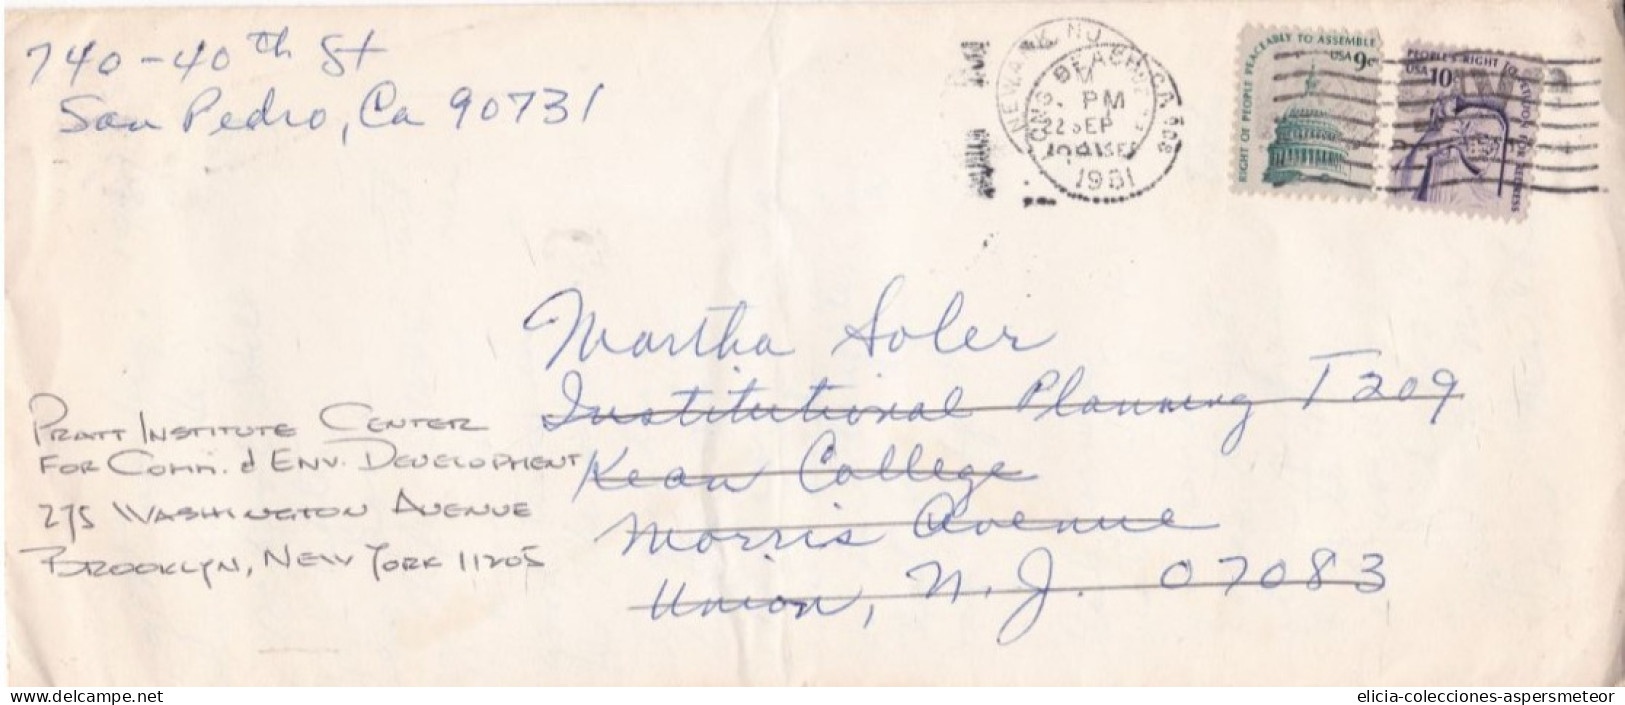 740-40th St
San Pedro, Ca 90731
NEWARK, NJ
LONG BEACH, CA 908
PM
22 SEP
1981
RIGHT OF PEOPLE PEACEABLY TO ASSEMBLE
USA 9c
PEOPLE'S RIGHT TO PETITION FOR REDRESS
USA 10c
Martha Soler
Institutional Planning T209
Kean College
Morris Avenue
Union, N.J. 07083
PRATT INSTITUTE CENTER
FOR COMM. & ENV. DEVELOPMENT
275 WASHINGTON AVENUE
BROOKLYN, NEW YORK 11205
delcampe.net
elicia-colecciones-aspersmeteor